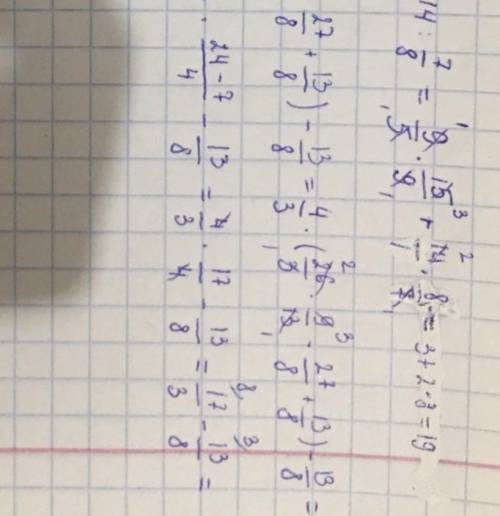 14 : 7/8 = 9/5 · 15/9 + 14/1 · 8/7 = 3 + 2 · 8 = 19
27/8 + 13/8) - 13/8 = 4/3 · (26/3 · 9/13 - 27/8 + 13/8) - 13/8 =
· (24 - 7)/4 - 13/8 = 4/3 · 17/4 - 13/8 = 17/3 - 13/8 =